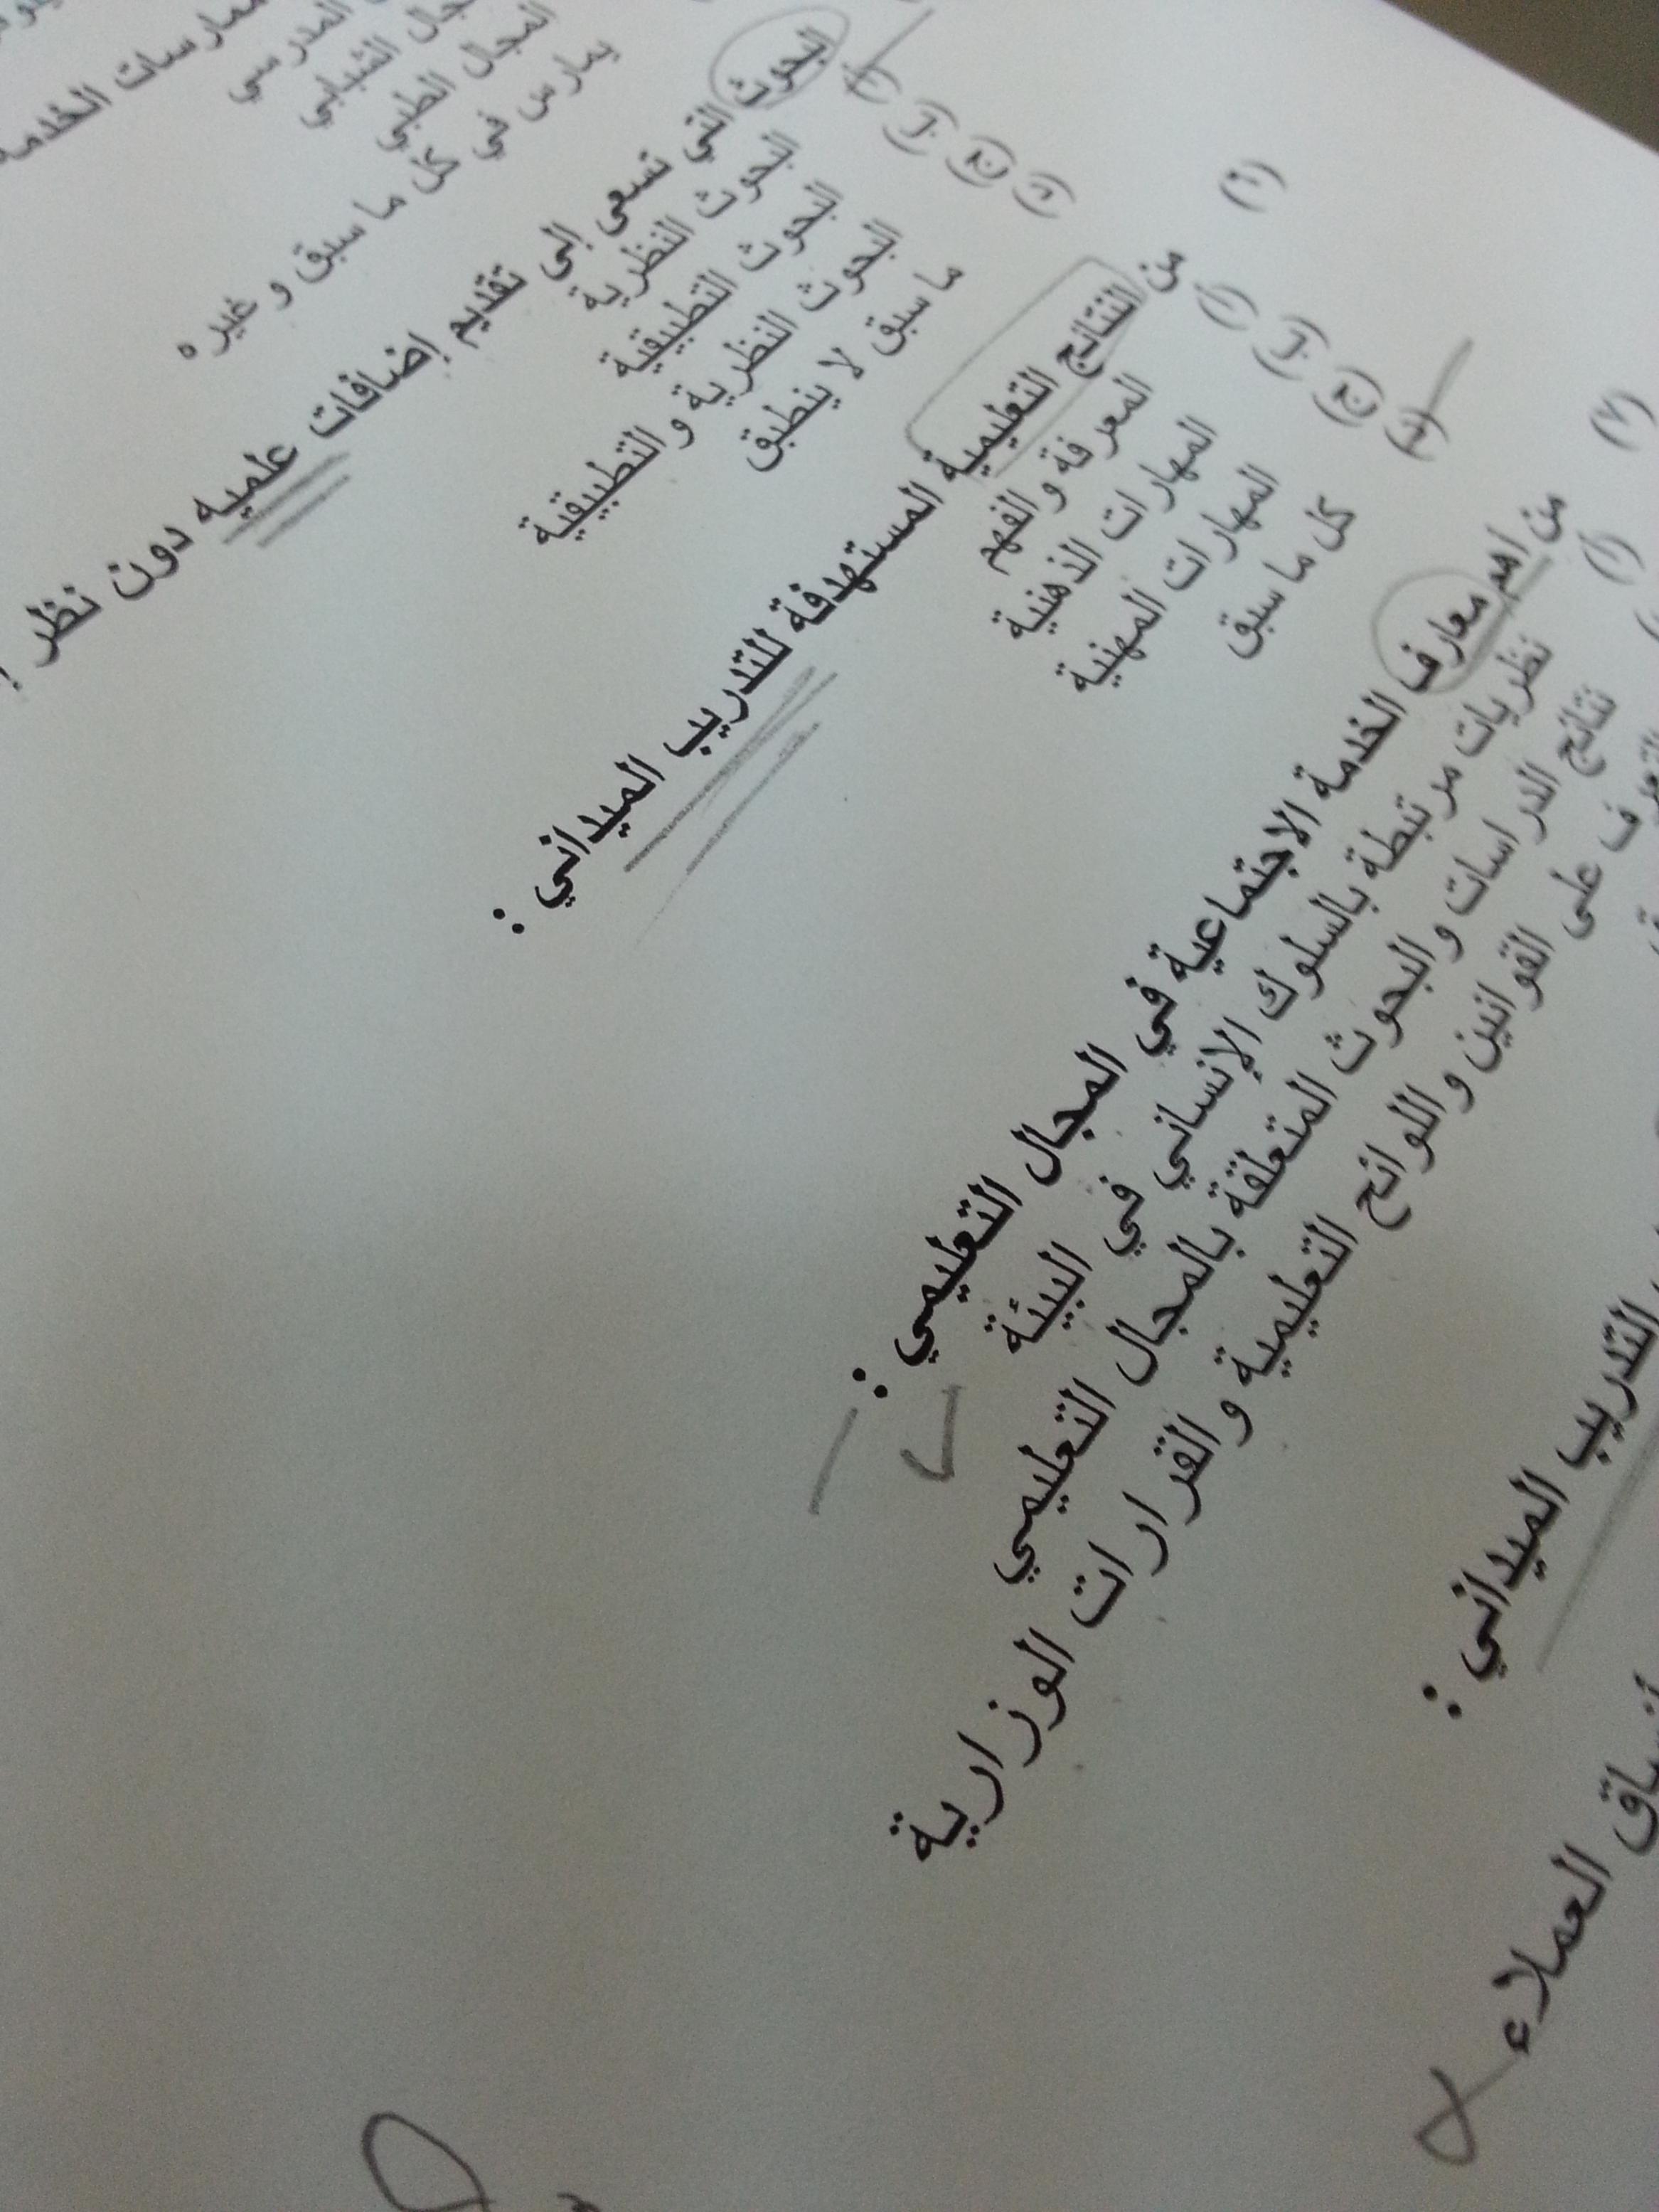 ممارسات الخدمة
المدرسي
الطبي
يمارس في كل ما سبق و غيره
البحوث التي تسعى إلى تقديم إضافات علميه دون نظر
أ) البحوث النظرية
ب) البحوث التطبيقية
ج) البحوث النظرية و التطبيقية
د) ما سبق لا ينطبق
٦) من النتائج التعليمية المستهدفة للتدريب الميداني :
أ) المعرفة والفهم
ب) المهارات الذهنية
ج) المهارات المهنية
د) كل ما سبق
٧) من اهم معارف الخدمة الاجتماعية في المجال التعليمي :
أ) نظريات مرتبطة بالسلوك الإنساني في البيئة
نتائج الدراسات والبحوث المتعلقة بالمجال التعليمي
التعرف على القوانين واللوائح التعليمية والقرارات الوزارية
التدريب الميداني :
العملاء